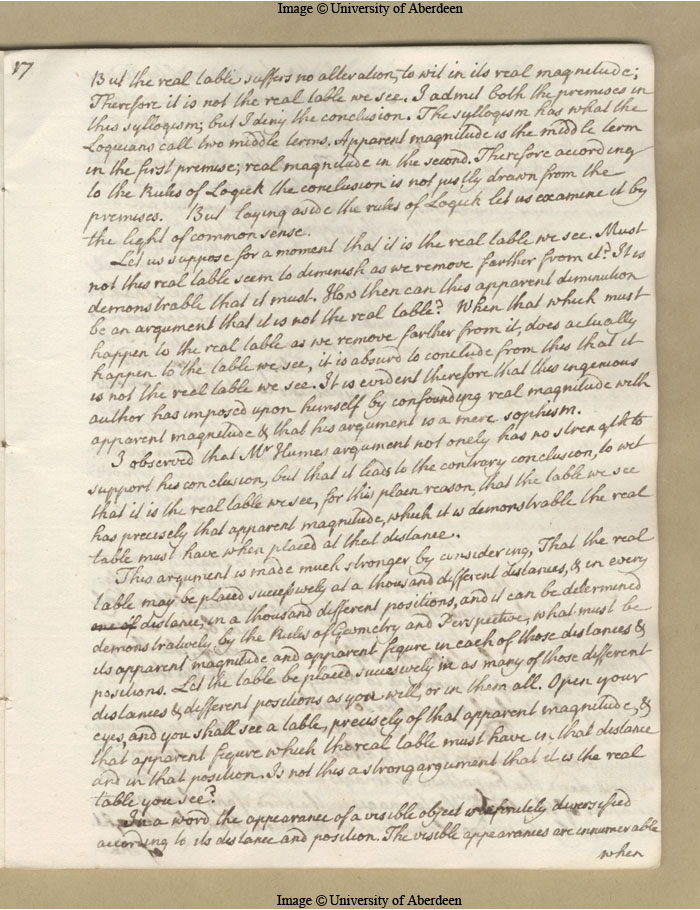 Image © University of Aberdeen
17
But the real table suffers no alteration, to wit in its real magnitude;
Therefore it is not the real table we see. I admit both the premises in
this syllogism; but I deny the conclusion. The syllogism has what the
Logicians call two middle terms. Apparent magnitude is the middle term
in the first premise; real magnitude in the second. Therefore according
to the Rules of Logick the conclusion is not justly drawn from the
premises. But laying aside the rules of Logick let us examine it by
the light of common sense.
Let us suppose for a moment that it is the real table we see. Must
not this real table seem to diminish as we remove farther from it? It is
demonstrable that it must. How then can this apparent diminution
be an argument that it is not the real table? When that which must
happen to the real table as we remove farther from it, does actually
happen to the table we see, it is absurd to conclude from this that it
is not the reel table we see. It is evident therefore that this ingenious
author has imposed upon himself by confounding real magnitude with
apparent magnitude & that his argument is a mere sophism.
I observed that Mr Humes argument not onely has no strength to
support his conclusion, but that it leads to the contrary conclusion, to wit
that it is the real table we see, for this plain reason, that the table we see
has precisely that apparent magnitude, which it is demonstrable the real
table must have when placed at that distance.
This argument is made much stronger by considering, That the real
table may be placed successively at a thousand different distances, & in every
one of distance, in a thousand different positions, and it can be determined
demonstratively, by the Rules of Geometry and Perspective, what must be
its apparent magnitude and apparent figure in each of those distances &
positions. Let the table be placed successively in as many of those different
distances & different positions as you will, or in them all. Open your
eyes, and you shall see a table, precisely of that apparent magnitude, &
that apparent figure which the real table must have in that distance
and in that position. Is not this a strong argument that it is the real
table you see?
In a word the appearance of a visible object is infinitely diversified
according to its distance and position. The visible appearances are innumerable
when
Image © University of Aberdeen